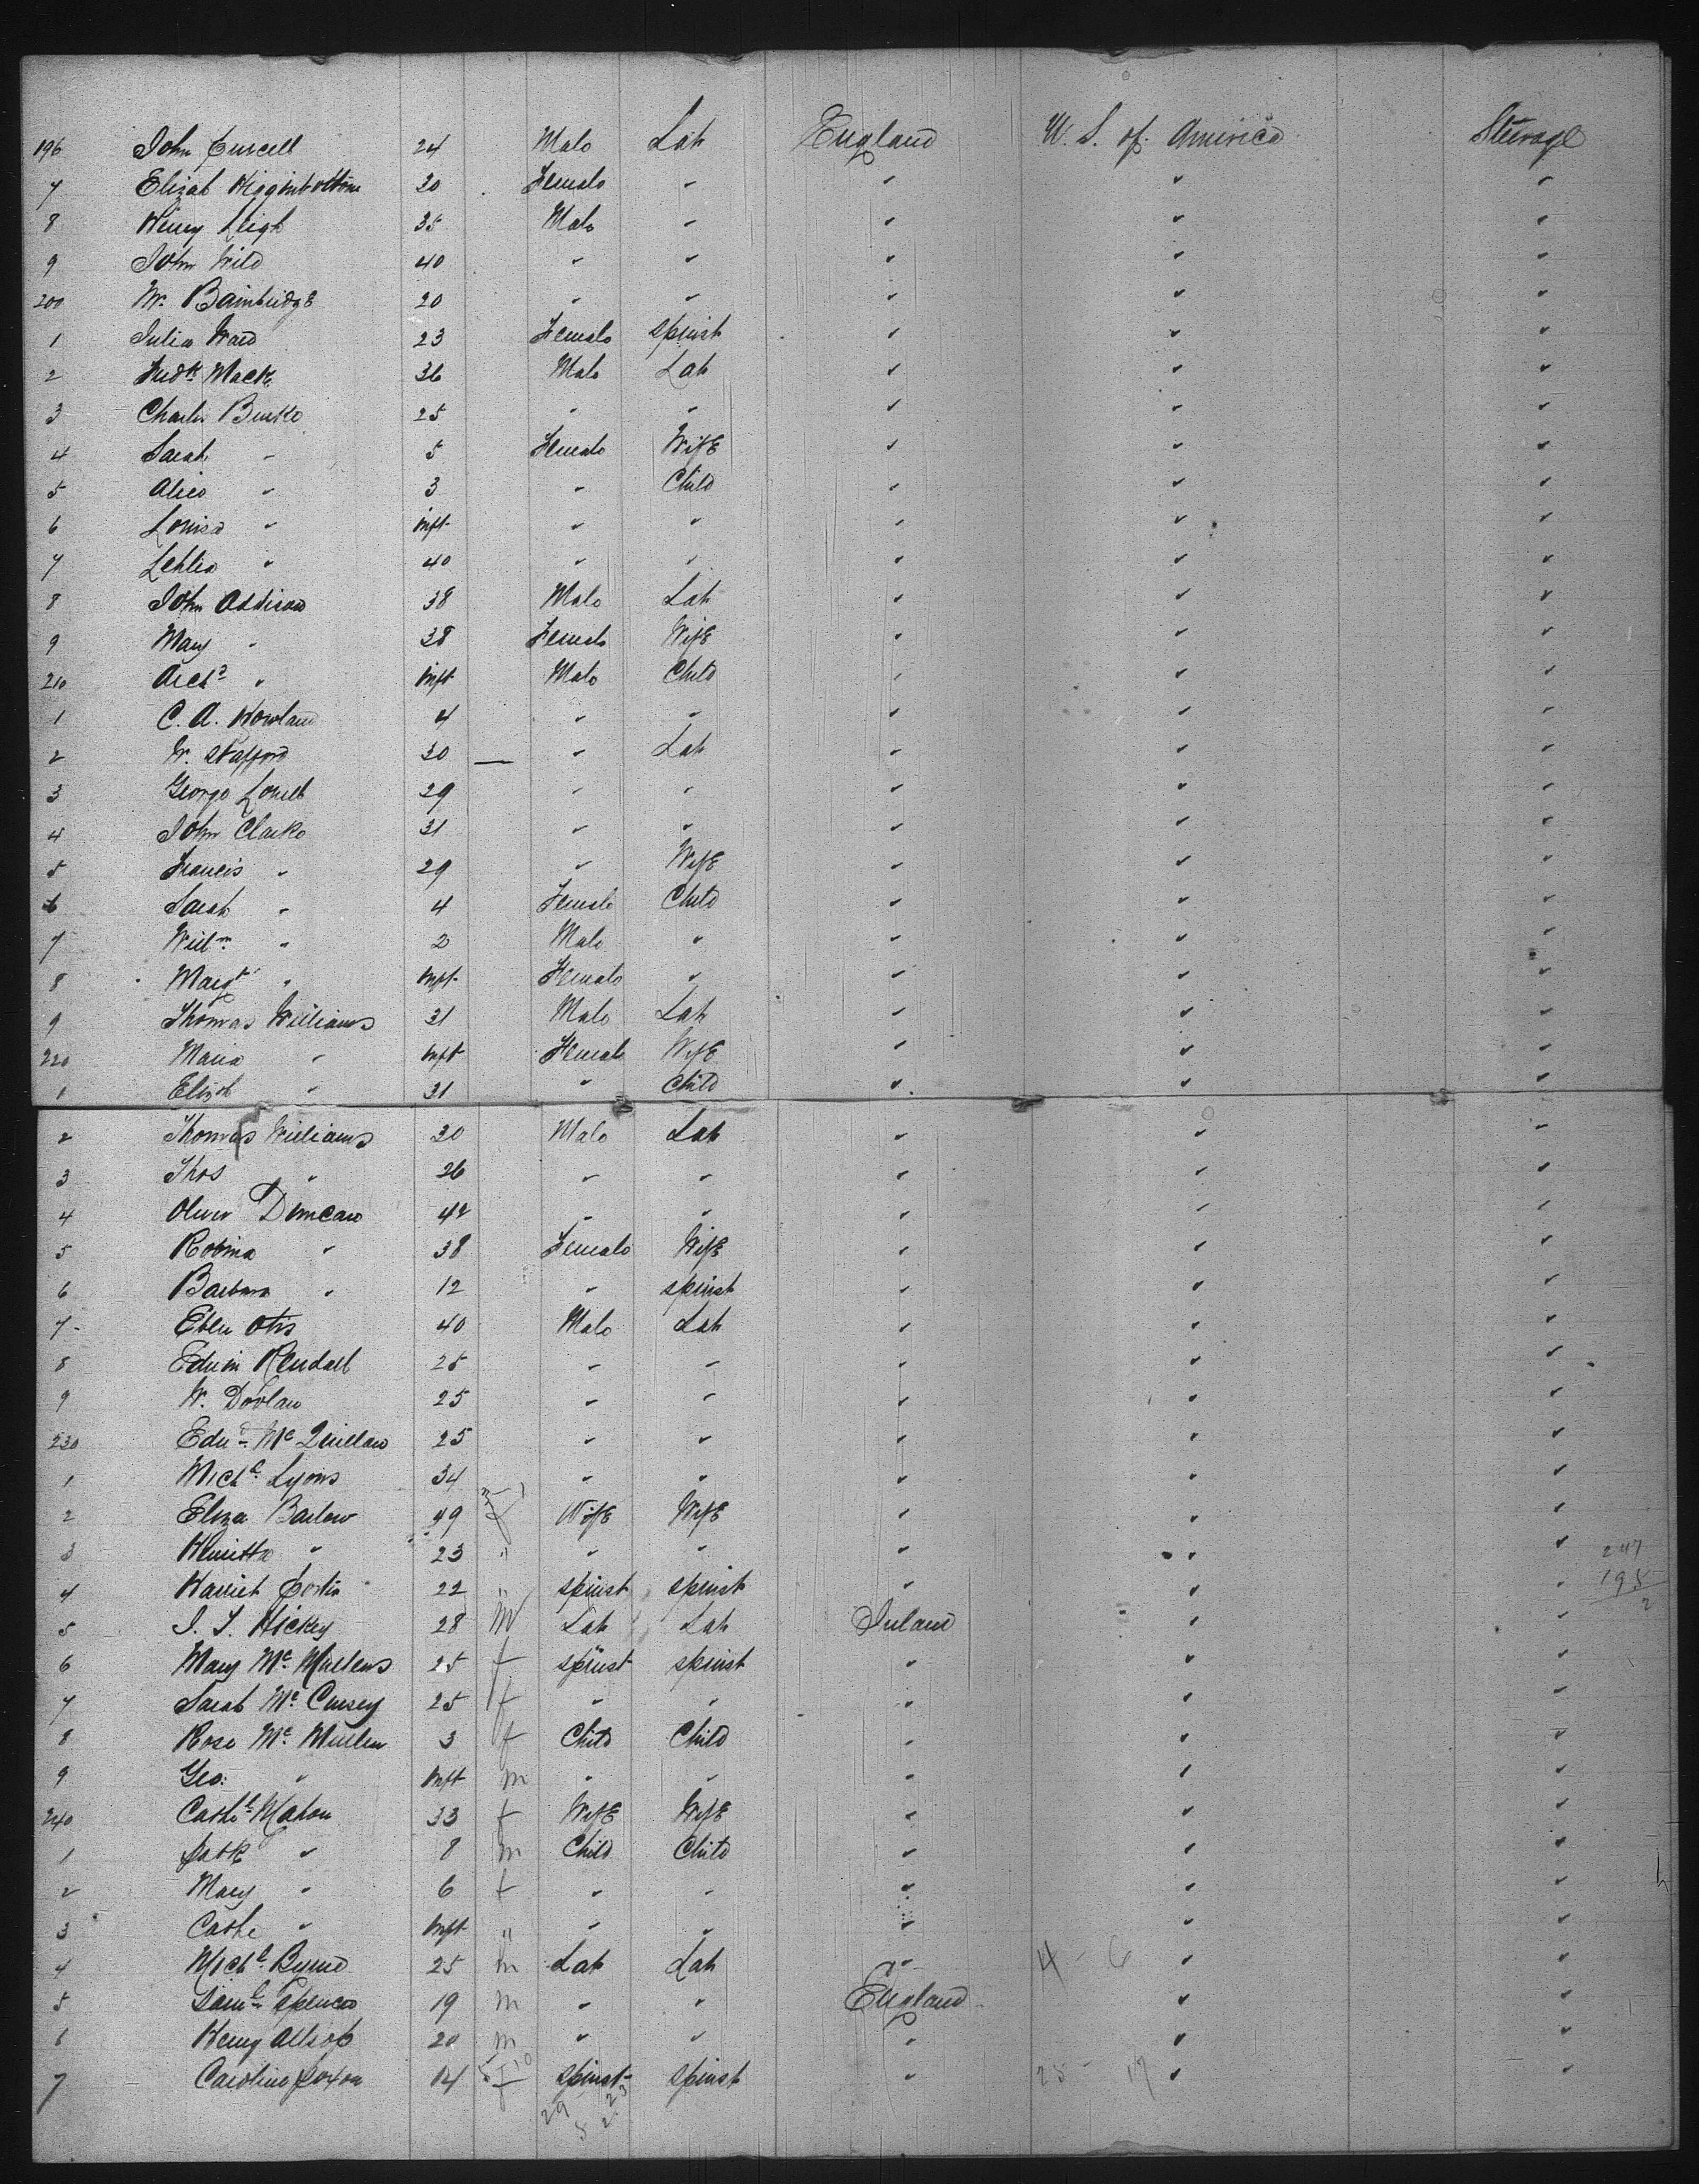 196 John Purcell 24 Male Lab England U. S. of America Steerage
7 Elizab Higginbottom 30 Female " " " "
8 Henry Leigh 35 Male " " " "
9 John Wild 40 " " " " "
200 W. Bainbridge 20 " " " " "
1 Julia Ward 23 Female Spinst " " "
2 Fredk Mack 36 Male Lab " " "
3 Charles Burke 25 " " " " "
4 Sarah " 5 Female Wife " " "
5 Alice " 3 " Child " " "
6 Louisa " Inft " " " " "
7 " 40 " " " " "
8 John Addison 38 Male Lab " " "
9 Mary " 38 Female Wife " " "
210 Archd " Inft Male Child " " "
1 C. A. Howland 4 " " " " "
2 W. Stafford 30 — " Lab " " "
3 George 29 " " " " "
4 John Clarke 31 " " " " "
5 Francis " 29 " Wife " " "
6 Sarah " 4 Female Child " " "
7 Willm " 2 Male " " " "
8 Margt " Inft Female " " " "
9 Thomas Williams 31 Male Lab " " "
220 Maria " Inft Female Wife " " "
1 Elizab " 31 " Child " " "
2 Thomas Williams 30 Male Lab " " "
3 Thos " 26 " " " " "
4 Oliver Duncan 42 " " " " "
5 Robina " 38 Female Wife " " "
6 Barbara " 12 " Spinst " " "
7 Eben Otis 40 Male Lab " " "
8 Edwin Kendall 25 " " " " "
9 W. Doolan 25 " " " " "
230 Edwd Mc Quillan 25 " " " " "
1 Michl Lyons 34 " " " " "
2 Eliza Barlow 49 f Wife Wife " " "
3 Henrietta " 23 " " " " " " 247
4 Harriet 22 " Spinst Spinst " " " 195
5 J. J. Hickey 28 M Lab Lab Ireland " "
6 Mary Mc Mullens 25 f Spinst Spinst " " "
7 Sarah Mc 25 f " " " " "
8 Rose Mc Mullen 3 f Child Child " " "
9 Geo: " Inft m " " " " "
240 Cathe Mahon 33 f Wife Wife " " "
1 Patk " 8 m Child Child " " "
2 Mary " 6 f " " " " "
3 Cathe " Inft " " " " " "
4 Michl Byrne 25 m Lab Lab " 4 - 6 " "
5 Saml Spencer 19 m " " England " "
6 Henry Allsop 20 m " " " " "
7 Caroline 14 f Spinst Spinst " 25 - 17 " "
29 5 23